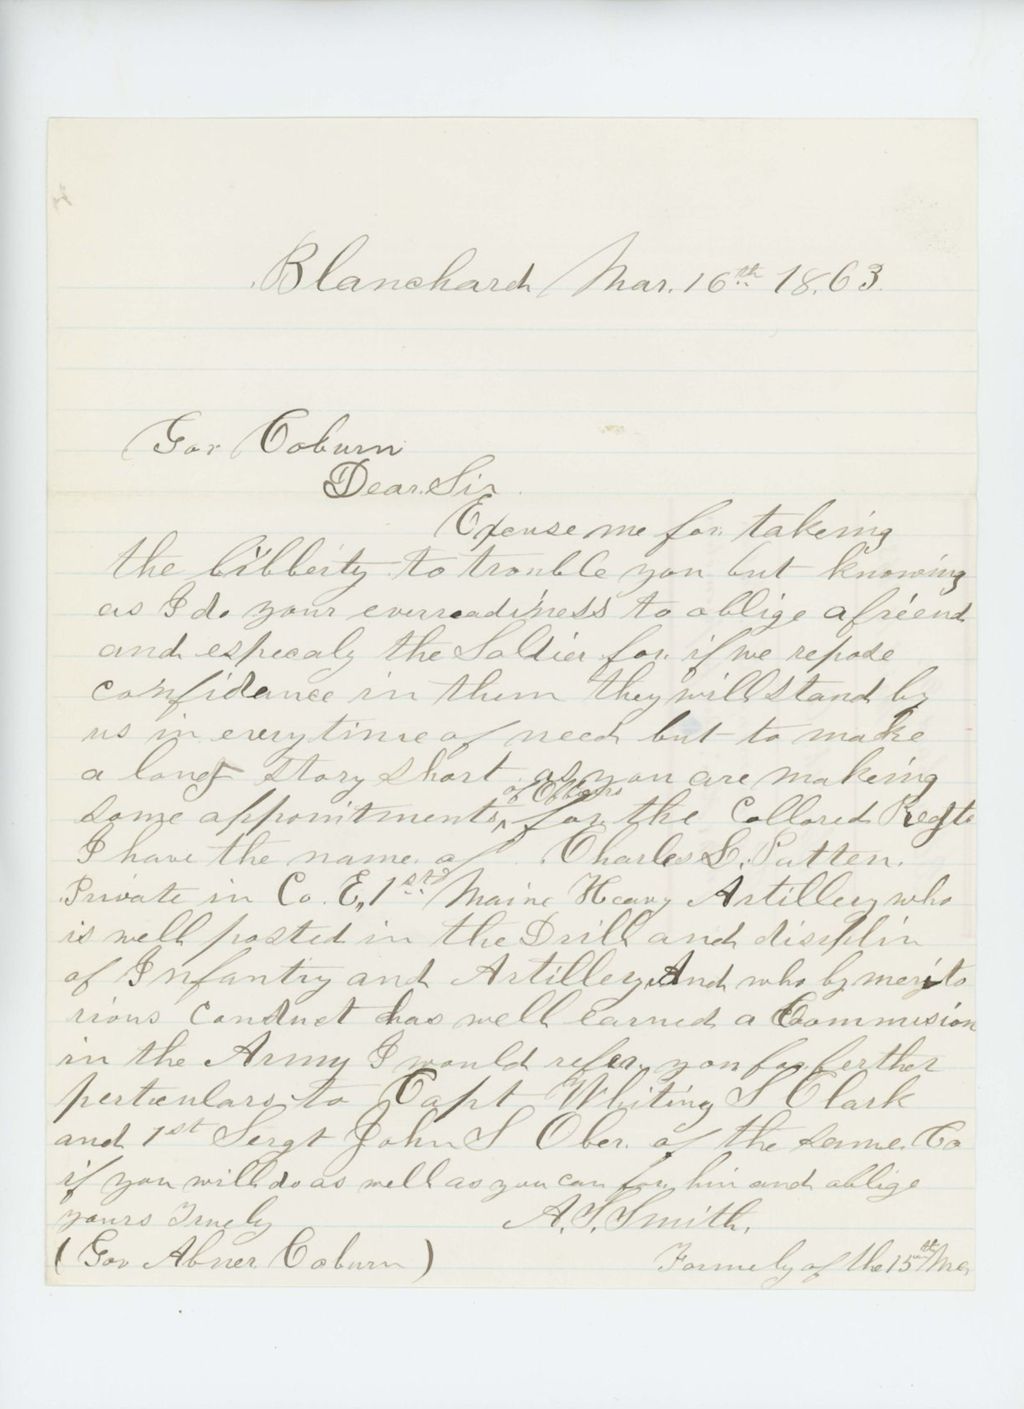 Blanchard Mar. 16th 18.63.
Gov Coburn
Dear Sir.
Excuse me for takeing
the libberty to trouble you but knowing
as I do your everreadiness to oblige a friend
and especaly the Soldier for if we repose
confidance in them they will stand by
us in every time of need but to make
a long story short as you are makeing
some appointments of Officers for the Collored Regte
I have the name of Charles L. Patten.
Private in Co. E, 1st Maine Heavy Artillery who
is well posted in the Drill and disiplin
of Infantry and Artillery And who by merito
rious Conduct has well earned a Commision
in the Army I would refer you for ferther
perticulars to Capt Whiting S Clark
and 1st Sergt John S Ober. of the same Co
if you will do as well as you can for him and oblige
yours Truely A. S. Smith.
(Gov Abner Coburn) Formely of the 15th Me